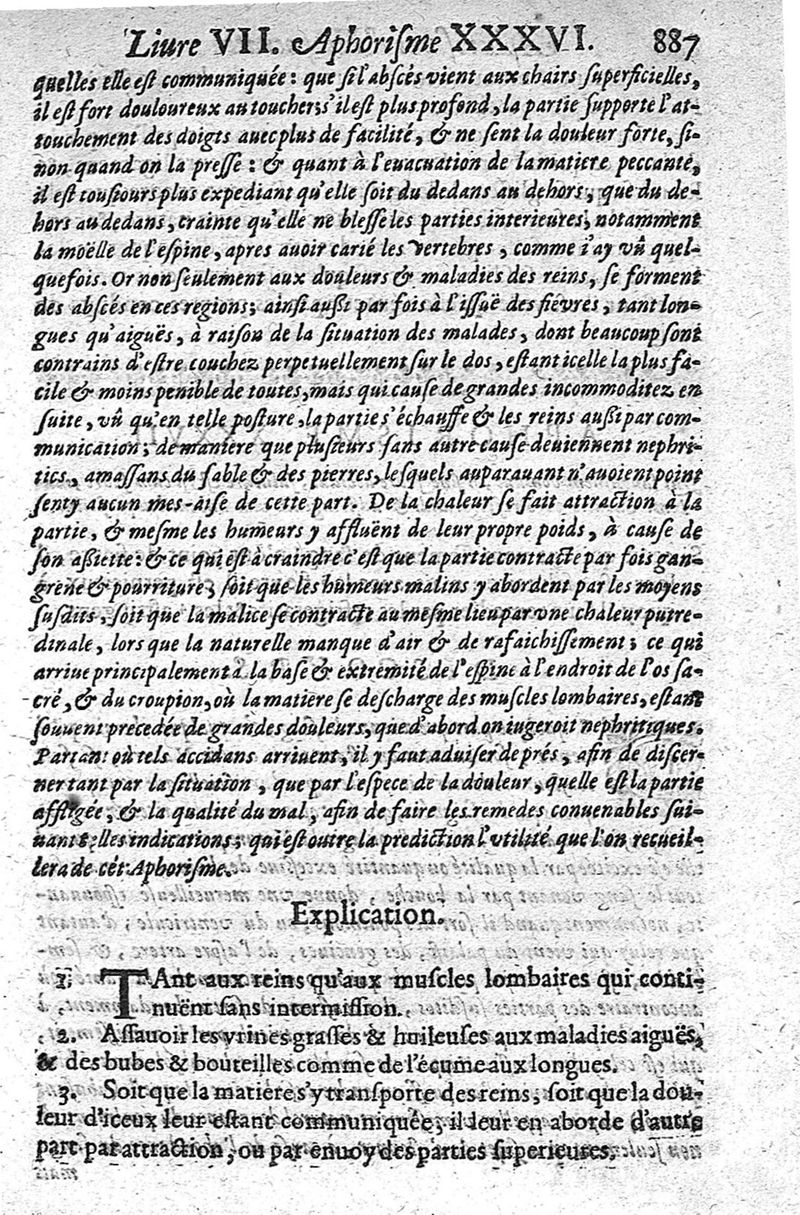 Liure VII. Aphoriſme XXXVI. 887
quelles elle eſt communiquée: que ſi l'abſcés vient aux chairs ſuperficielles,
il eſt fort douloureux au toucher; s'il eſt plus profond, la partie ſupporte l'at-
touchement des doigts auec plus de facilité, & ne ſent la douleur forte, ſi-
non quand on la preſſe: & quant à l'euacuation de la matiere peccante,
il eſt touſiours plus expediant qu'elle ſoit du dedans au dehors, que du de-
hors au dedans, crainte qu'elle ne bleſſe les parties interieures, notamment
la moëlle de l'eſpine, apres auoir carié les vertebres, comme i'ay vû quel-
quefois. Or non ſeulement aux douleurs & maladies des reins, ſe forment
des abſcés en ces regions; ainſi außi par fois à l'iſſuë des fiévres, tant lon-
gues qu'aiguës, à raiſon de la ſituation des malades, dont beaucoup ſont
contrains d'eſtre couchez perpetuellement ſur le dos, eſtant icelle la plus fa-
cile & moins penible de toutes, mais qui cauſe de grandes incommoditez en
ſuite, vû qu'en telle poſture, la partie s'échauffe & les reins außi par com-
munication; de maniere que pluſieurs ſans autre cauſe deuiennent nephri-
tics, amaſſans du ſable & des pierres, leſquels auparauant n'auoient point
ſenty aucun mes-aiſe de cette part. De la chaleur ſe fait attraction à la
partie, & meſme les humeurs y affluënt de leur propre poids, à cauſe de
ſon aßiette: & ce qui eſt à craindre c'eſt que la partie contracte par fois gan-
grene & pourriture; ſoit que les humeurs malins y abordent par les moyens
ſuſdits, ſoit que la malice ſe contracte au meſme lieu par vne chaleur putre-
dinale, lors que la naturelle manque d'air & de rafaichiſſement; ce qui
arriue principalement à la baſe & extremité de l'eſpine à l'endroit de l'os ſa-
cré, & du croupion, où la matiere ſe deſcharge des muſcles lombaires, eſtant
ſouvent précedée de grandes douleurs, que d'abord on iugeroit nephritiques.
Partant où tels accidans arriuent, il y faut aduiſer de prés, afin de diſcer-
ner tant par la ſituation, que par l'eſpece de la douleur, quelle eſt la partie
affligée, & la qualité du mal, afin de faire les remedes conuenables ſui-
uant telles indications; qui eſt outre la prediction l'vtilité que l'on recueil-
lera de cét Aphoriſme.
Explication.
1. TAnt aux reins qu'aux muſcles lombaires qui conti-
nuënt ſans intermiſſion.
2. Aſſauoir les vrines graſſes & huileuſes aux maladies aiguës,
& des bubes & bouteilles comme de l'écume aux longues.
3. Soit que la matiere s'y tranſporte des reins, ſoit que la dou-
leur d'iceux leur eſtant communiquée, il leur en aborde d'autre
part par attraction, ou par enuoy des parties ſuperieures.